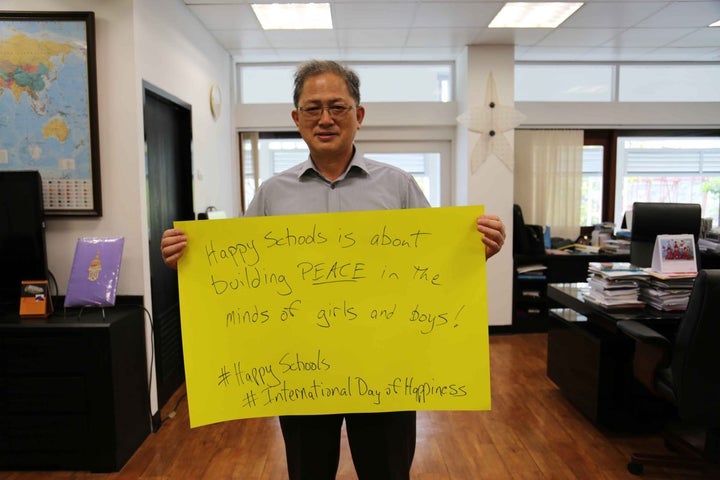 Happy Schools is about
building PEACE in the
minds of girls and boys!
#Happy Schools
# International Day of Happiness